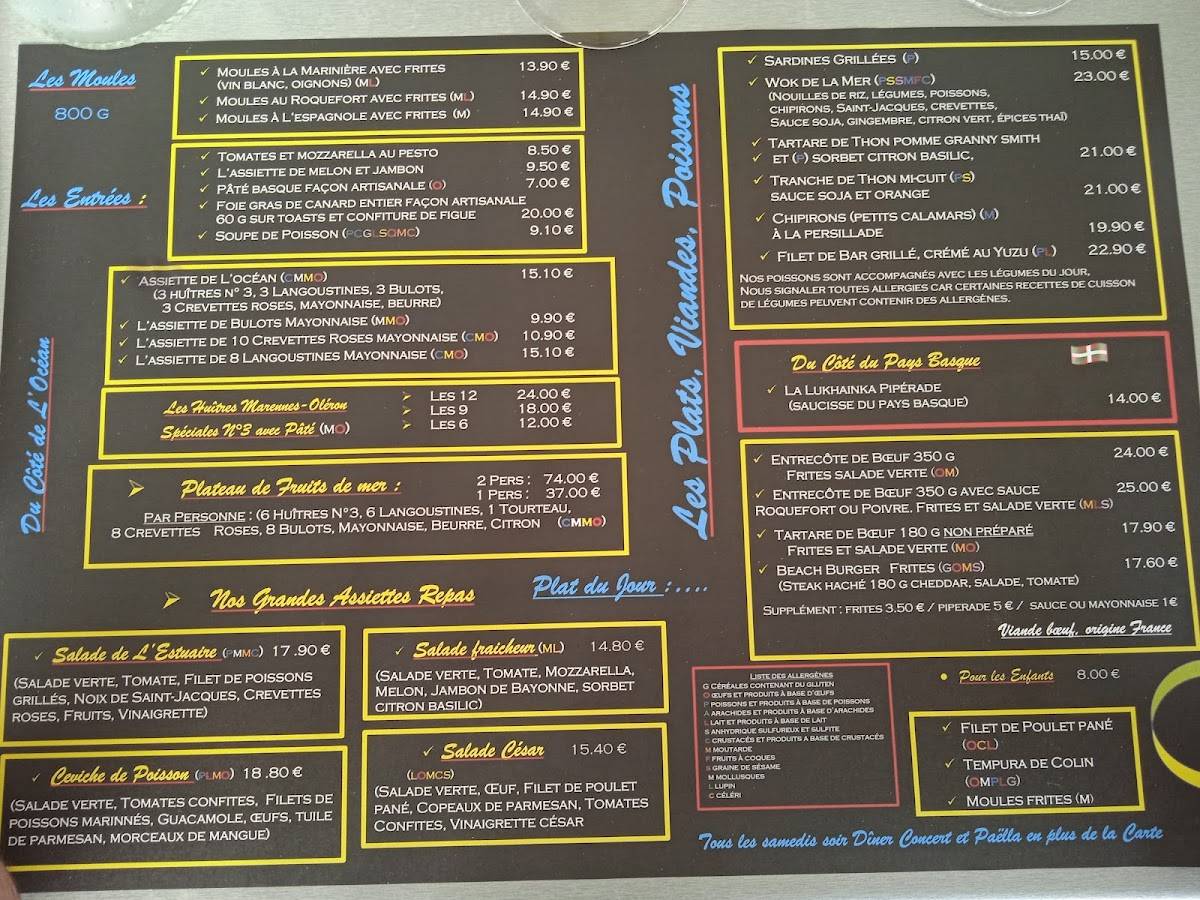 Les Moules
800 G
✓ MOULES À LA MARINIÈRE AVEC FRITES 13.90 €
(VIN BLANC, OIGNONS) (ML)
✓ MOULES AU ROQUEFORT AVEC FRITES (ML) 14.90 €
✓ MOULES À L'ESPAGNOLE AVEC FRITES (M) 14.90 €
Les Entrées :
✓ TOMATES ET MOZZARELLA AU PESTO 8.50 €
✓ L'ASSIETTE DE MELON ET JAMBON 9.50 €
✓ PÂTÉ BASQUE FAÇON ARTISANALE (O) 7.00 €
✓ FOIE GRAS DE CANARD ENTIER FAÇON ARTISANALE
60 G SUR TOASTS ET CONFITURE DE FIGUE 20.00 €
✓ SOUPE DE POISSON (PCGLSAMC) 9.10 €
Du Côté de L'Océan
✓ ASSIETTE DE L'OCÉAN (CMMO) 15.10 €
(3 HUÎTRES N° 3, 3 LANGOUSTINES, 3 BULOTS,
3 CREVETTES ROSES, MAYONNAISE, BEURRE)
✓ L'ASSIETTE DE BULOTS MAYONNAISE (MMO) 9.90 €
✓ L'ASSIETTE DE 10 CREVETTES ROSES MAYONNAISE (CMO) 10.90 €
✓ L'ASSIETTE DE 8 LANGOUSTINES MAYONNAISE (CMO) 15.10 €
Les Huîtres Marennes-Oléron ➢ LES 12 24.00 €
➢ LES 9 18.00 €
Spéciales N°3 avec Pâté (MO) ➢ LES 6 12.00 €
➢ Plateau de Fruits de mer : 2 PERS : 74.00 €
1 PERS : 37.00 €
PAR PERSONNE : (6 HUÎTRES N°3, 6 LANGOUSTINES, 1 TOURTEAU,
8 CREVETTES ROSES, 8 BULOTS, MAYONNAISE, BEURRE, CITRON (CMMO)
➢ Nos Grandes Assiettes Repas
Plat du Jour :....
✓ Salade de L'Estuaire (PMMC) 17.90 €
(SALADE VERTE, TOMATE, FILET DE POISSONS
GRILLÉS, NOIX DE SAINT-JACQUES, CREVETTES
ROSES, FRUITS, VINAIGRETTE)
✓ Salade fraicheur (ML) 14.80 €
(SALADE VERTE, TOMATE, MOZZARELLA,
MELON, JAMBON DE BAYONNE, SORBET
CITRON BASILIC)
✓ Ceviche de Poisson (PLMO) 18.80 €
(SALADE VERTE, TOMATES CONFITES, FILETS DE
POISSONS MARINNÉS, GUACAMOLE, ŒUFS, TUILE
DE PARMESAN, MORCEAUX DE MANGUE)
✓ Salade César 15.40 €
(LOMCS)
(SALADE VERTE, ŒUF, FILET DE POULET
PANÉ, COPEAUX DE PARMESAN, TOMATES
CONFITES, VINAIGRETTE CÉSAR
Les Plats, Viandes, Poissons
✓ SARDINES GRILLÉES (P) 15.00 €
✓ WOK DE LA MER (PSSMFC) 23.00 €
(NOUILLES DE RIZ, LÉGUMES, POISSONS,
CHIPIRONS, SAINT-JACQUES, CREVETTES,
SAUCE SOJA, GINGEMBRE, CITRON VERT, ÉPICES THAÏ)
✓ TARTARE DE THON POMME GRANNY SMITH
✓ ET (P) SORBET CITRON BASILIC, 21.00 €
✓ TRANCHE DE THON MI-CUIT (PS)
SAUCE SOJA ET ORANGE 21.00 €
✓ CHIPIRONS (PETITS CALAMARS) (M)
À LA PERSILLADE 19.90 €
✓ FILET DE BAR GRILLÉ, CRÉMÉ AU YUZU (PL) 22.90 €
NOS POISSONS SONT ACCOMPAGNÉS AVEC LES LÉGUMES DU JOUR,
NOUS SIGNALER TOUTES ALLERGIES CAR CERTAINES RECETTES DE CUISSON
DE LÉGUMES PEUVENT CONTENIR DES ALLERGÈNES.
Du Côté du Pays Basque
✓ LA LUKHAINKA PIPÉRADE
(SAUCISSE DU PAYS BASQUE) 14.00 €
✓ ENTRECÔTE DE BŒUF 350 G 24.00 €
FRITES SALADE VERTE (OM)
✓ ENTRECÔTE DE BŒUF 350 G AVEC SAUCE 25.00 €
ROQUEFORT OU POIVRE. FRITES ET SALADE VERTE (MLS)
✓ TARTARE DE BŒUF 180 G NON PRÉPARÉ 17.90 €
FRITES ET SALADE VERTE (MO)
✓ BEACH BURGER FRITES (GOMS) 17.60 €
(STEAK HACHÉ 180 G CHEDDAR, SALADE, TOMATE)
SUPPLÉMENT : FRITES 3.50 € / PIPERADE 5 € / SAUCE OU MAYONNAISE 1€
Viande bœuf, origine France
LISTE DES ALLERGÈNES
G CÉRÉALES CONTENANT DU GLUTEN
O ŒUFS ET PRODUITS À BASE D'ŒUFS
P POISSONS ET PRODUITS À BASE DE POISSONS
A ARACHIDES ET PRODUITS À BASE D'ARACHIDES
L LAIT ET PRODUITS À BASE DE LAIT
S ANHYDRIQUE SULFUREUX ET SULFITE
C CRUSTACÉS ET PRODUITS A BASE DE CRUSTACÉS
M MOUTARDE
F FRUITS À COQUES
S GRAINE DE SÉSAME
M MOLLUSQUES
L LUPIN
C CÉLÉRI
• Pour les Enfants 8.00 €
✓ FILET DE POULET PANÉ
(OCL)
✓ TEMPURA DE COLIN
(OMPLG)
✓ MOULES FRITES (M)
Tous les samedis soir Dîner Concert et Paëlla en plus de la Carte